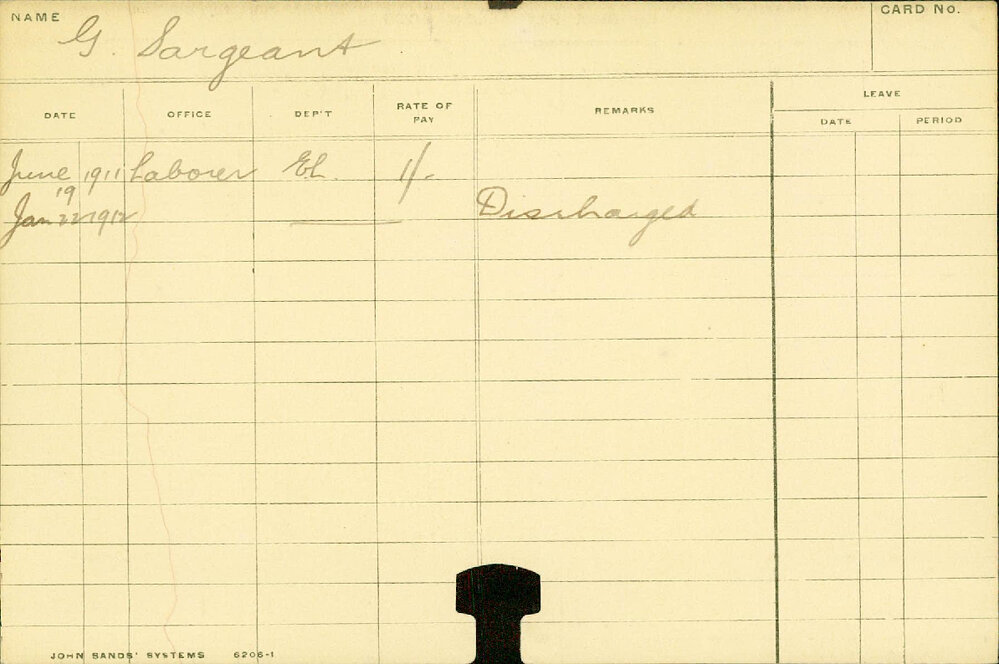 NAME G. Sargeant CARD No.
DATE OFFICE DEP'T RATE OF PAY REMARKS LEAVE
DATE PERIOD
June 1911 Laborer El. 1/-
19
Jan 22 1912 Discharged
JOHN SANDS' SYSTEMS 6206-1